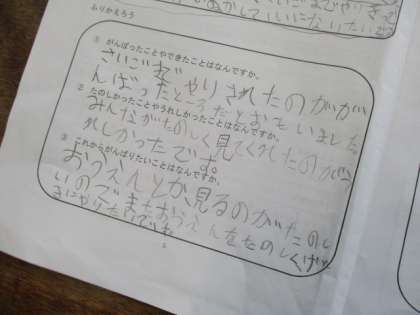 ふりかえろう
① がんばったことやできたことはなんですか。
さいごまでやりきれたのがが
んばったところだとおもいました。
② たのしかったことやうれしかったことはなんですか。
みんながたのしく見てくれたのがう
れしかったです。
③ これからがんばりたいことはなんですか。
おうえんとか、見るのがたのし
いのでまたおうえんをたのしくげん
きにやりたいです。